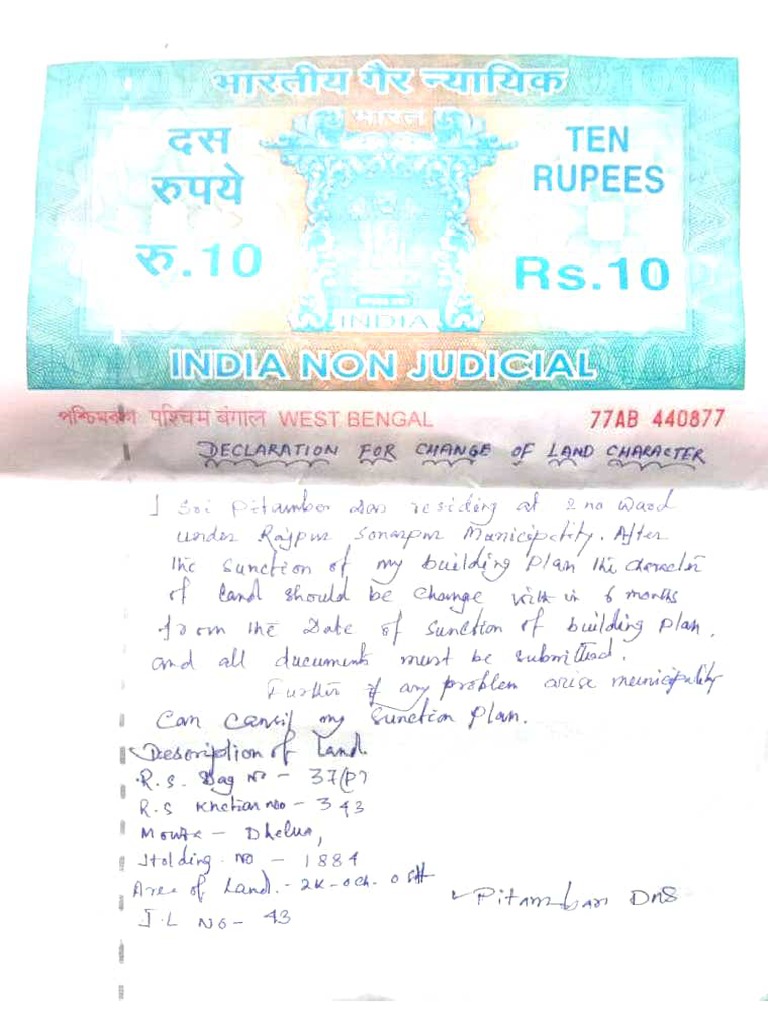 भारतीय गैर न्यायिक
भारत
दस
रुपये
रु.10
TEN
RUPEES
Rs.10
INDIA
INDIA NON JUDICIAL
পশ্চিমবঙ্গ पश्चिम बंगाल WEST BENGAL 77AB 440877
DECLARATION FOR CHANGE OF LAND CHARACTER
I Sri Pitambar Das residing at 2 no Ward
under Rajpur Sonarpur Municipality. After
the sunction of my building plan the character
of land should be change with in 6 months
from the Date of sunction of building plan.
and all document must be submitted.
Further if any problem arise municipality
Can my sunction plan.
Description of Land.
R.S. Dag No - 37(P)
R.S Khetian no - 343
Mouza - Dhelua,
Holding no - 1884
Area of Land. - 2K-0ch. 0 sft
J.L No - 43
Pitambar DAS